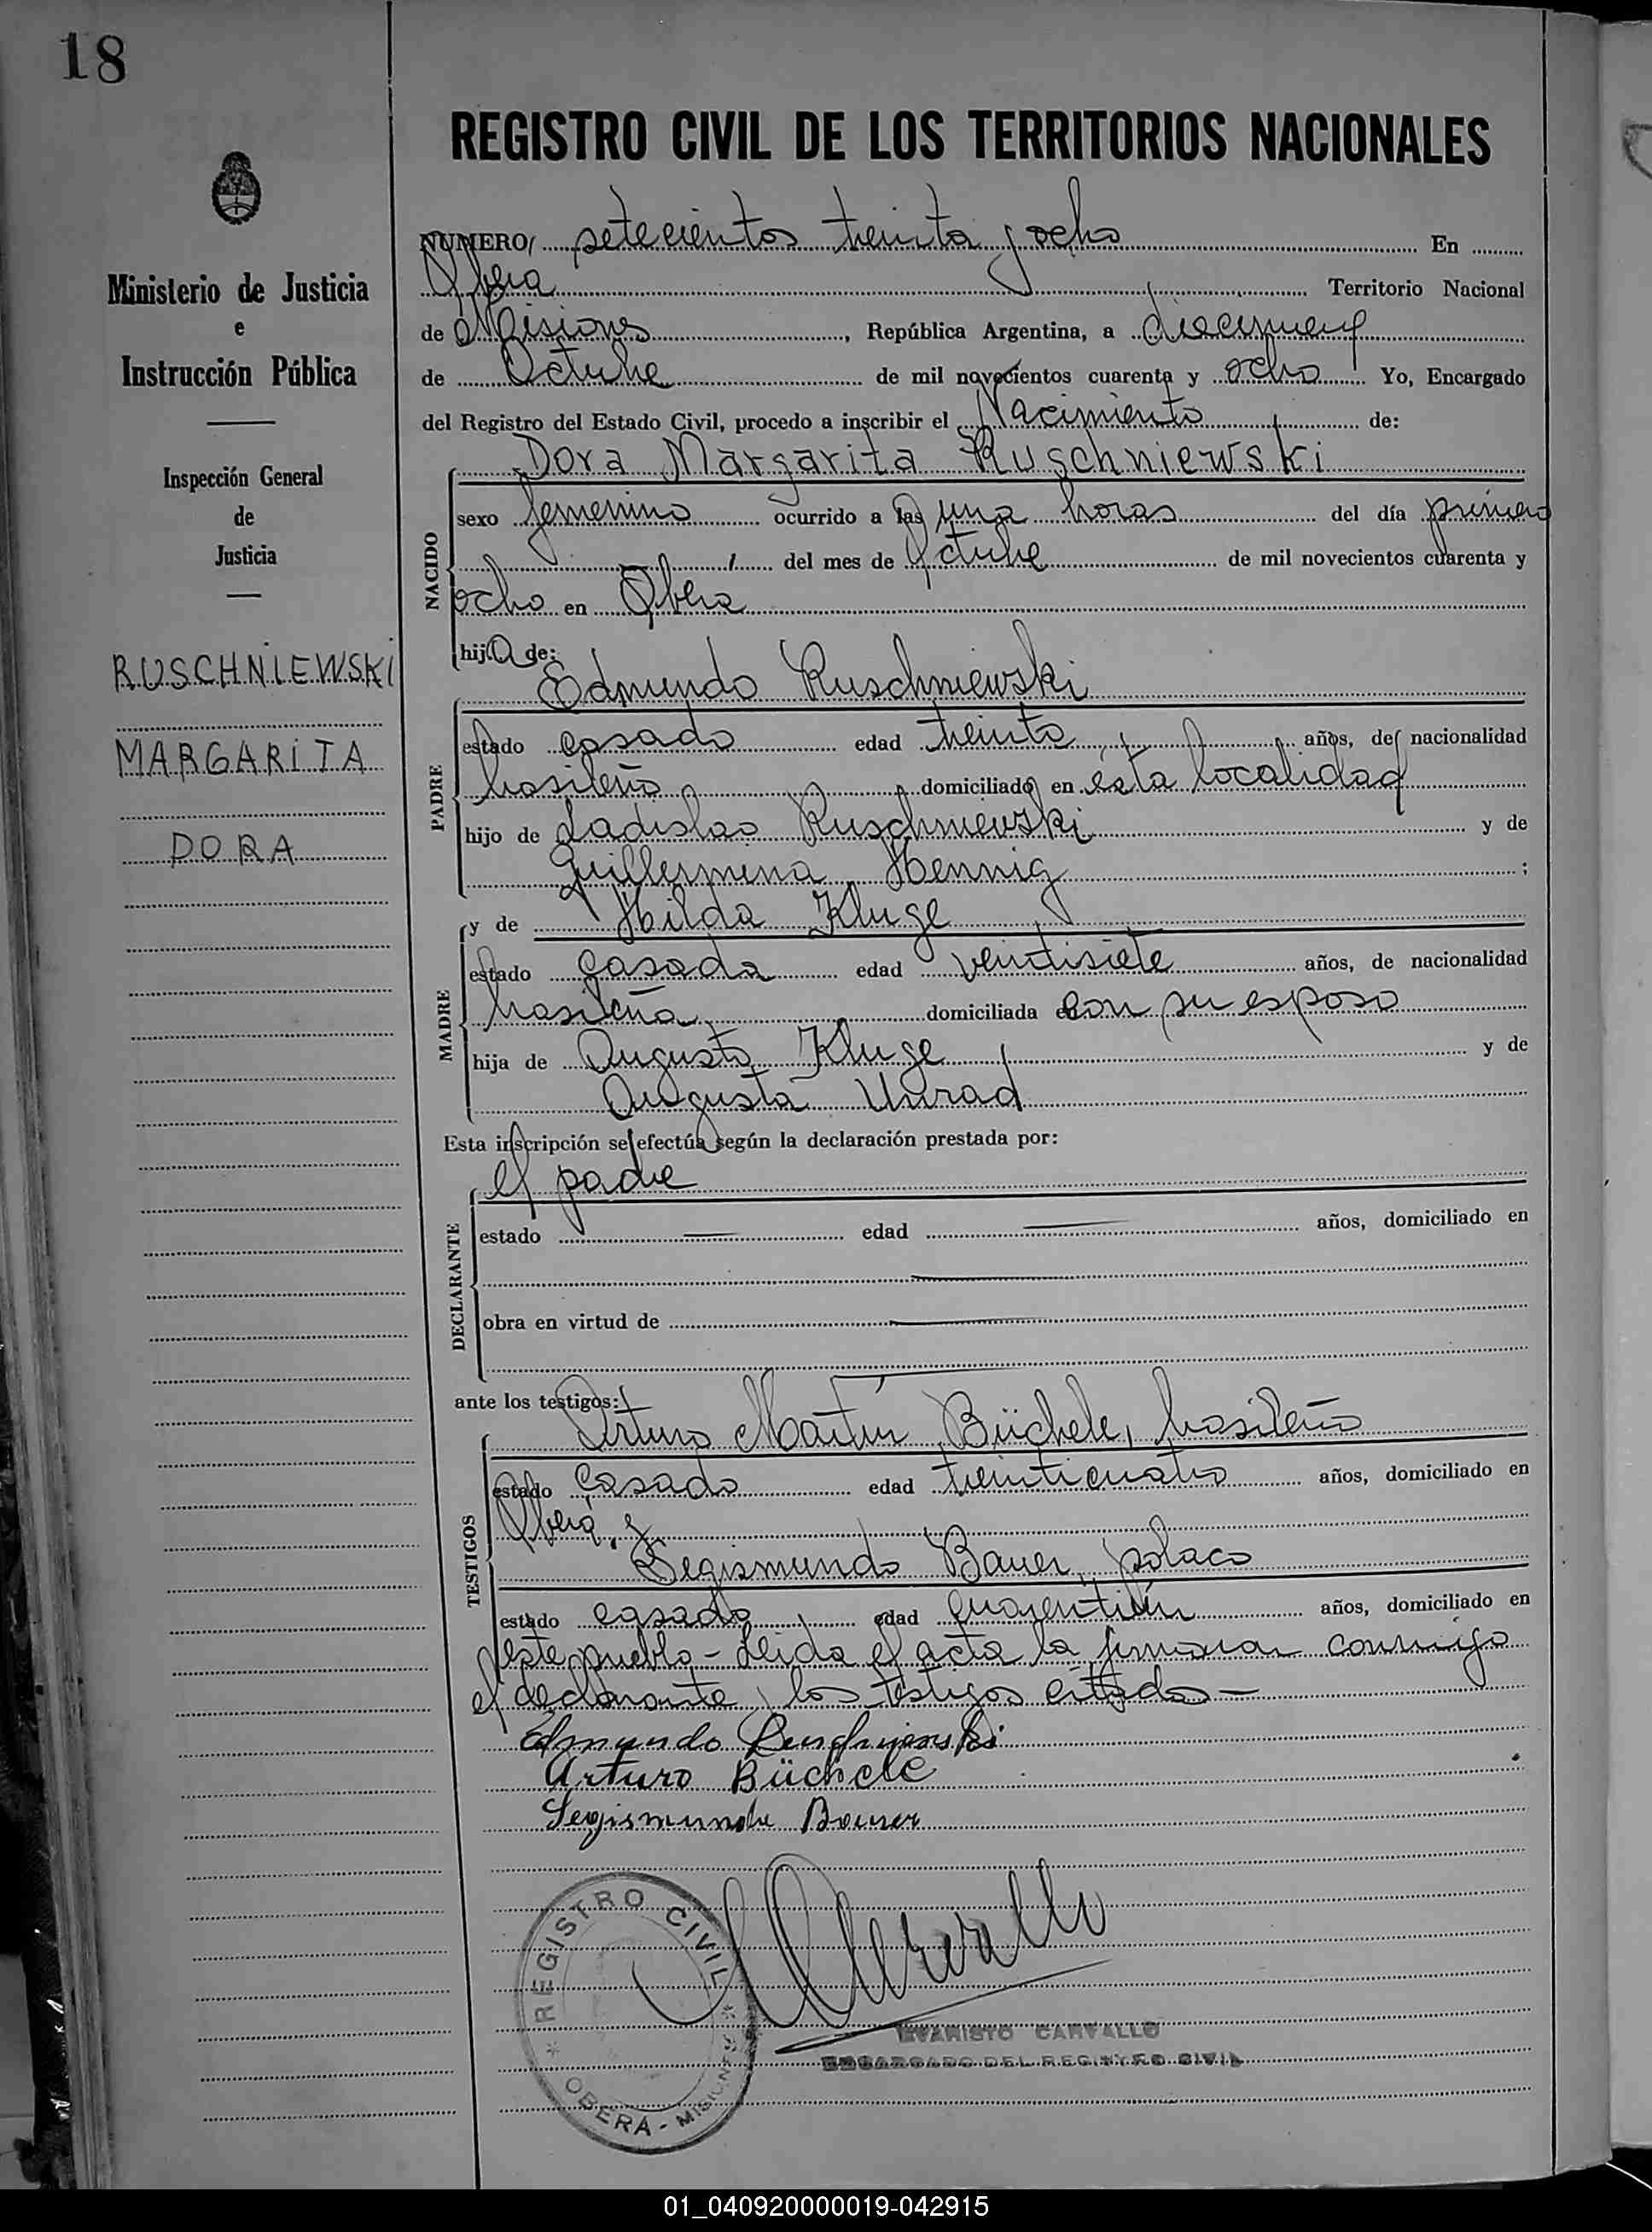 18
REGISTRO CIVIL DE LOS TERRITORIOS NACIONALES
Ministerio de Justicia
e
Instrucción Pública
Inspección General
de
Justicia
RUSCHNIEWSKI
MARGARITA
DORA
NUMERO setecientos treinta y ocho En
Oberá Territorio Nacional
de Misiones, República Argentina, a diecinueve
de Octubre de mil novecientos cuarenta y ocho Yo, Encargado
del Registro del Estado Civil, procedo a inscribir el Nacimiento de:
Dora Margarita Ruschniewski
NACIDO
sexo femenino ocurrido a las una horas del día primero
del mes de Octubre de mil novecientos cuarenta y
ocho en Oberá
hija de:
Edmundo Ruschniewski
PADRE
estado casado edad treinta años, de nacionalidad
brasileño domiciliado en ésta localidad
hijo de Ladislao Ruschniewski y de
Guillermina Hennig ;
y de Hilda Kluge
MADRE
estado casada edad veintisiete años, de nacionalidad
brasileña domiciliada con su esposo
hija de Augusto Kluge y de
Augusta Unrad
Esta inscripción se efectúa según la declaración prestada por:
el padre
DECLARANTE
estado edad años, domiciliado en
obra en virtud de
ante los testigos:
Arturo Martin Büchele, brasileño
TESTIGOS
estado casado edad treinticuatro años, domiciliado en
Oberá, y
Segismundo Bauer, polaco
estado casado edad cuarentiún años, domiciliado en
este pueblo - Leida el acta la firmaron conmigo
el declarante y los testigos citados -
Edmundo Ruschniewski
Arturo Büchele
Segismundo Bauer
REGISTRO CIVIL
OBERA - MISIONES
EVARISTO CARVALLO
ENCARGADO DEL REGISTRO CIVIL
01_040920000019-042915